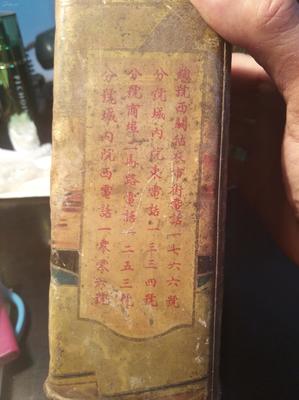 總號西關估衣市街電話一七六六號
分號城內院東電話一三三四號
分號商埠二馬路電話一二五三號
分號城內院西電話一零零六號
PECHOIN